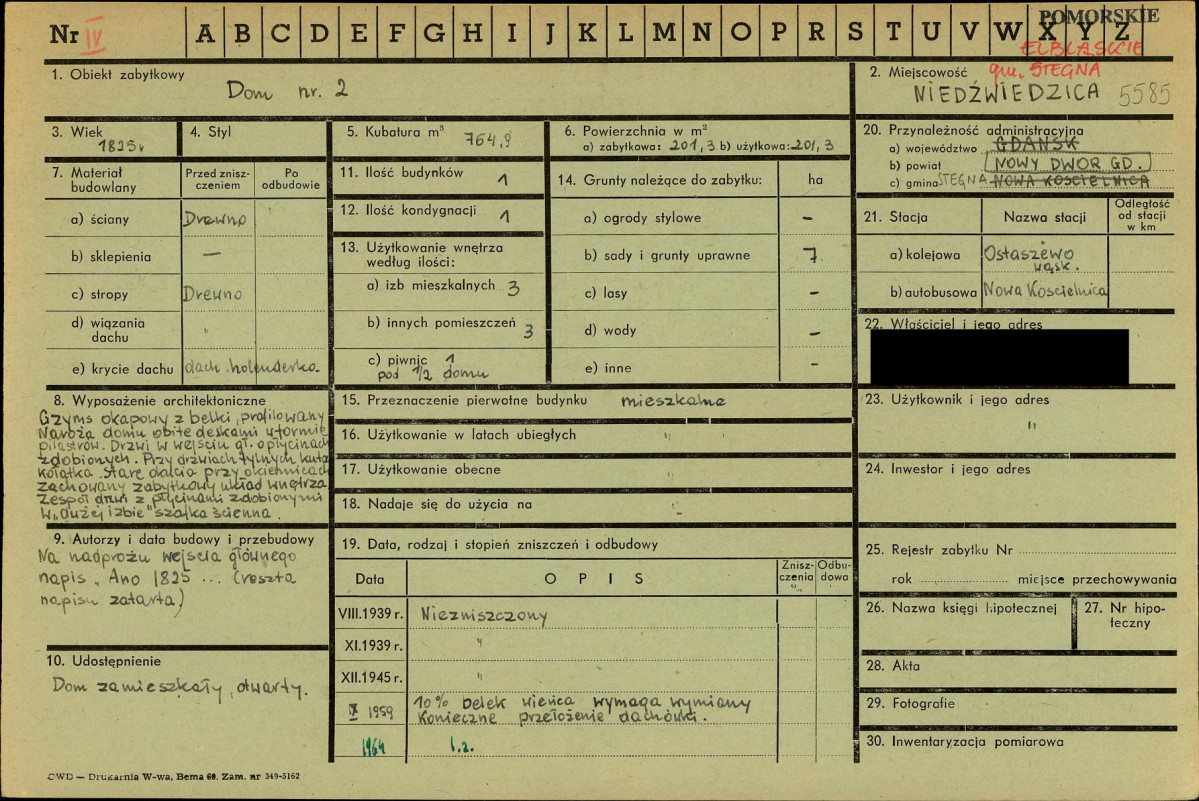 POMORSKIE
Nr IV A B C D E F G H I J K L M N O P R S T U V W X Y Z
ELBLĄSKIE
gm. STEGNA
1. Obiekt zabytkowy
Dom nr. 2
2. Miejscowość
NIEDŹWIEDZICA 5585
3. Wiek
1825r
4. Styl
5. Kubatura m³ 764,9
6. Powierzchnia w m²
a) zabytkowa: 201,3 b) użytkowa: 201,3
20. Przynależność administracyjna
a) województwo GDAŃSK
b) powiat NOWY DWÓR GD.
c) gmina STEGNA NOWA KOŚCIELNICA
7. Materiał budowlany
Przed zniszczeniem
Po odbudowie
a) ściany Drewno
b) sklepienia —
c) stropy Drewno
d) wiązania dachu "
e) krycie dachu dach. holenderka
11. Ilość budynków 1
12. Ilość kondygnacji 1
13. Użytkowanie wnętrza
według ilości:
a) izb mieszkalnych 3
b) innych pomieszczeń 3
c) piwnic 1
pod 1/2 domu
14. Grunty należące do zabytku: ha
a) ogrody stylowe –
b) sady i grunty uprawne 7
c) lasy –
d) wody –
e) inne
21. Stacja
Nazwa stacji
Odległość od stacji w km
a) kolejowa Ostaszewo
wąsk.
b) autobusowa Nowa Kościelnica
22. Właściciel i jego adres
8. Wyposażenie architektoniczne
Gzyms okapowy z belki, profilowany
Naroża domu obite deskami w formie
pilastrów. Drzwi w wejściu gł. o płycinach
zdobionych. Przy drzwiach tylnych kuta
kołatka. Stare okucia przy okiennicach
zachowany zabytkowy układ wnętrza
Zespół drzwi z płycinami zdobionymi
W „dużej izbie" szafka ścienna.
15. Przeznaczenie pierwotne budynku mieszkalne
16. Użytkowanie w latach ubiegłych "
17. Użytkowanie obecne "
18. Nadaje się do użycia na "
23. Użytkownik i jego adres
"
24. Inwestor i jego adres
9. Autorzy i data budowy i przebudowy
Na nadprożu wejścia głównego
napis „Ano 1825 ... (reszta
napisu zatarta)
19. Data, rodzaj i stopień zniszczeń i odbudowy
Data
OPIS
Zniszczenia %
Odbudowa
VIII.1939 r. Niezniszczony
XI.1939 r. "
XII.1945 r. "
X 1959 10% belek wieńca wymaga wymiany
Konieczne przełożenie dachówki.
1964 l.z.
25. Rejestr zabytku Nr
rok miejsce przechowywania
26. Nazwa księgi hipotecznej
27. Nr hipoteczny
28. Akta
29. Fotografie
30. Inwentaryzacja pomiarowa
10. Udostępnienie
Dom zamieszkały, otwarty.
CWD — Drukarnia W-wa, Bema 60. Zam. nr 349-5162